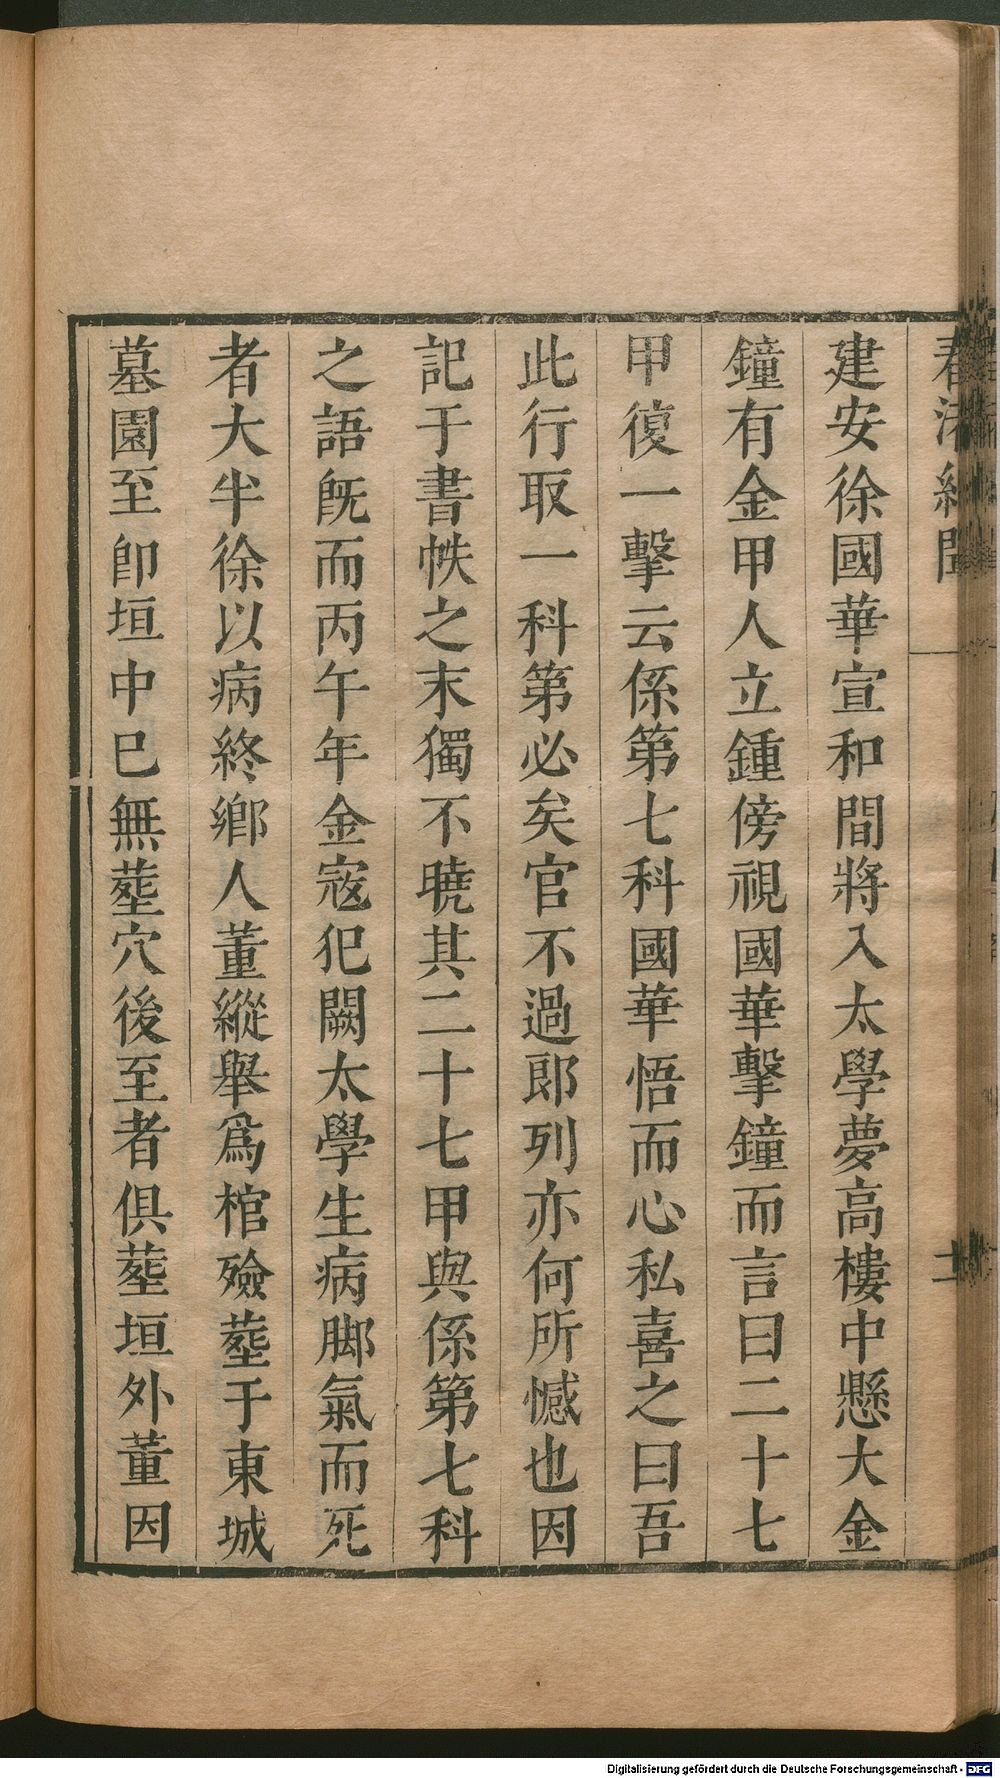 春渚紀聞
建安徐國華宣和間將入太學夢高樓中懸大金
鐘有金甲人立鍾傍視國華擊鐘而言曰二十七
甲復一擊云係第七科國華悟而心私喜之曰吾
此行取一科第必矣官不過郎列亦何所憾也因
記于書帙之末獨不曉其二十七甲與係第七科
之語旣而丙午年金寇犯闕太學生病脚氣而死
者大半徐以病終鄉人董縱舉爲棺殮塟于東城
墓園至卽垣中巳無塟穴後至者俱塟垣外董因
Digitalisierung gefördert durch die Deutsche Forschungsgemeinschaft - DFG